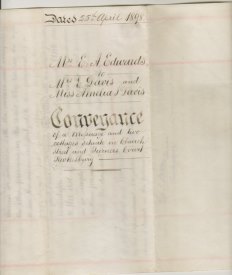 Dated 25th April 1898
Mrs E. A. Edwards
to
Mrs E Davis and
Miss Amelia Davis
Conveyance
of a Messuage and two
cottages situate in Church
Street and Court
Tewkesbury